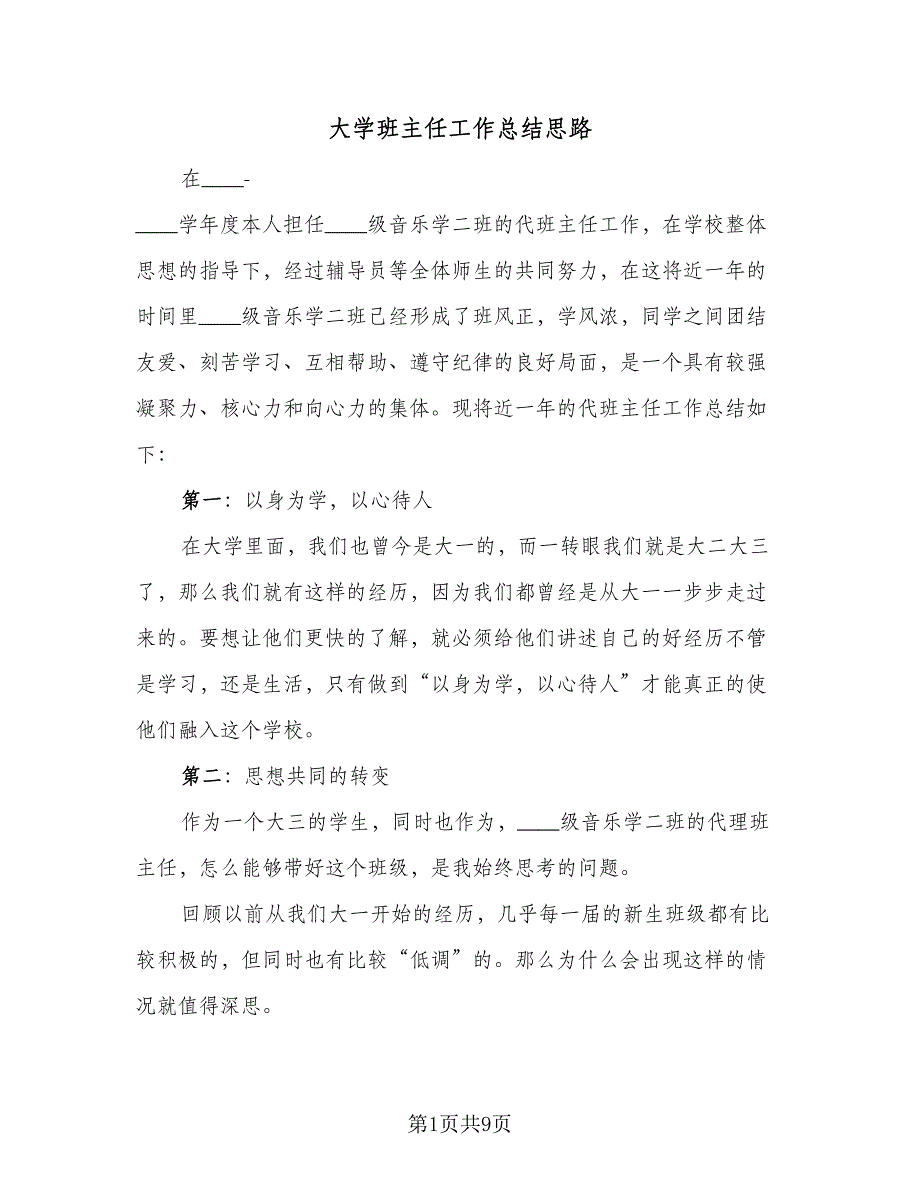 大学班主任工作总结思路
在____-
____学年度本人担任____级音乐学二班的代班主任工作，在学校整体
思想的指导下，经过辅导员等全体师生的共同努力，在这将近一年的
时间里____级音乐学二班已经形成了班风正，学风浓，同学之间团结
友爱、刻苦学习、互相帮助、遵守纪律的良好局面，是一个具有较强
凝聚力、核心力和向心力的集体。现将近一年的代班主任工作总结如
下：
第一：以身为学，以心待人
在大学里面，我们也曾今是大一的，而一转眼我们就是大二大三
了，那么我们就有这样的经历，因为我们都曾经是从大一一步步走过
来的。要想让他们更快的了解，就必须给他们讲述自己的好经历不管
是学习，还是生活，只有做到“以身为学，以心待人”才能真正的使
他们融入这个学校。
第二：思想共同的转变
作为一个大三的学生，同时也作为，____级音乐学二班的代理班
主任，怎么能够带好这个班级，是我始终思考的问题。
回顾以前从我们大一开始的经历，几乎每一届的新生班级都有比
较积极的，但同时也有比较“低调”的。那么为什么会出现这样的情
况就值得深思。
第1页共9页